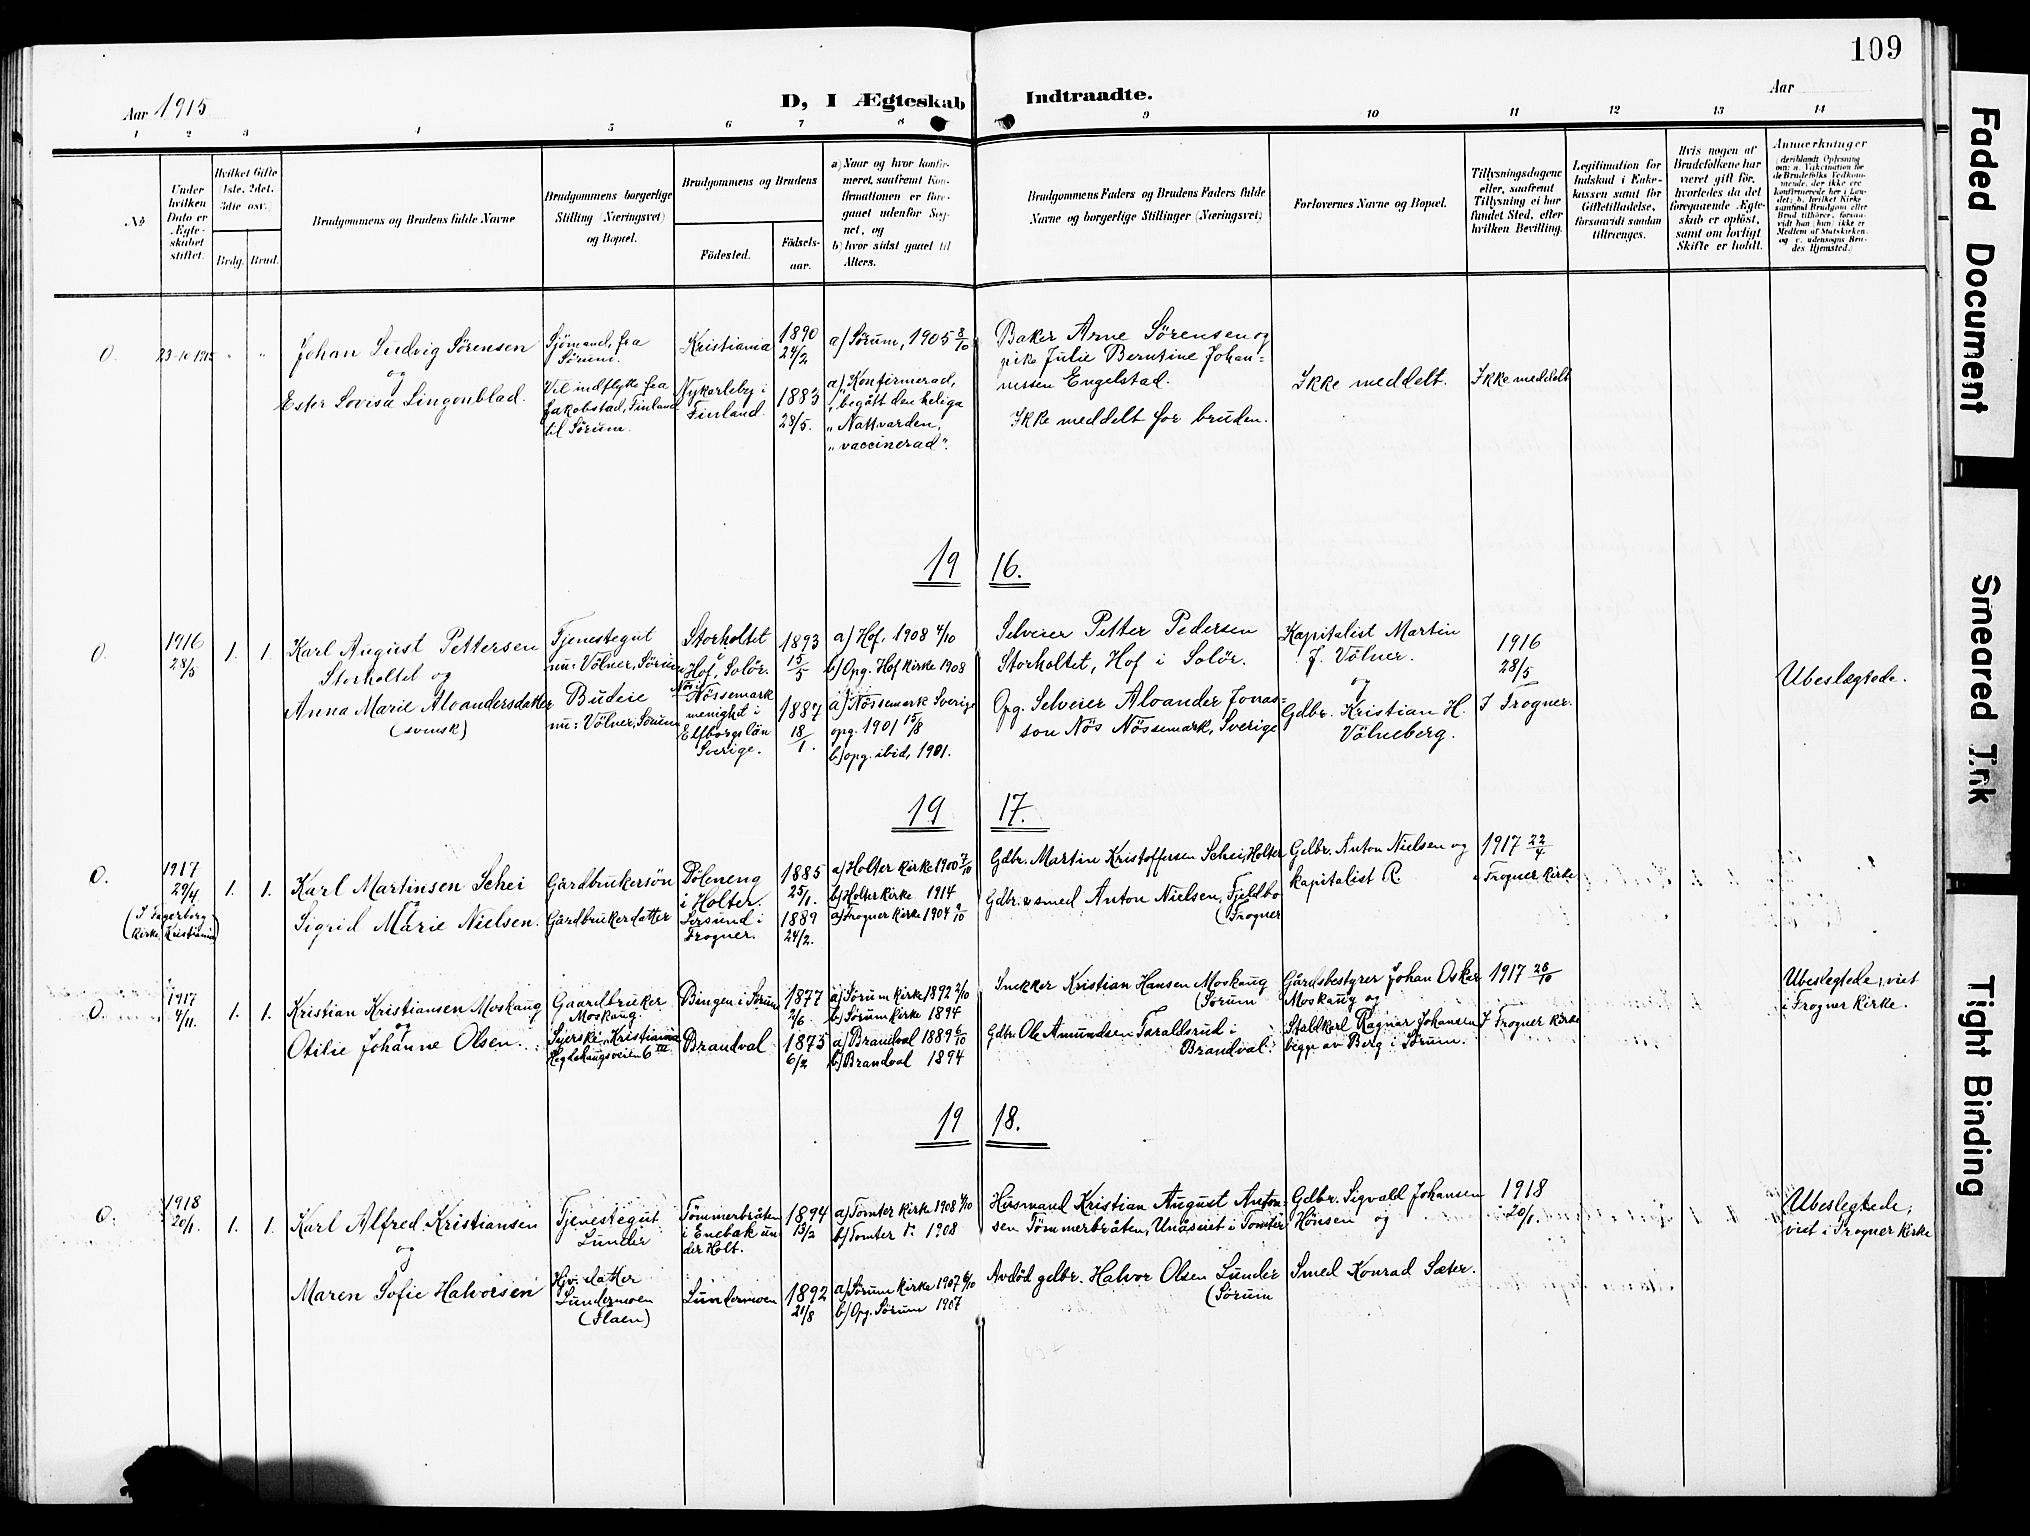 109
Aar 1915
D, I Ægteskab Indtraadte.
Aar
1 2 3 4 5 6 7 8 9 10 11 12 13 14
No
Under
hvilken
Dato er
Ægte-
skabet
stiftet.
Hvilket Gifte
(1ste, 2det,
3die osv.)
Brdg. Brud.
Brudgommens og Brudens fulde Navne
Brudgommens borgerlige
Stilling (Næringsvei)
og Bopæl.
Brudgommens og Brudens
Födested.
Födsels-
aar.
a) Naar og hvor konfir-
meret, saafremt Kon-
firmationen er fore-
gaaet udenfor Sog-
net, og
b) hvor sidst gaaet til
Alters.
Brudgommens Faders og Brudens Faders fulde
Navne og borgerlige Stillinger (Næringsvei)
Forlovernes Navne og Bopæl.
Tillysningsdagene
eller, saafremt
Tillysning ei har
fundet Sted, efter
hvilken Bevilling.
Legitimation for
Indskud i Enke-
kassen samt for
Giftetilladelse,
forsaavidt saadan
tiltrænges.
Hvis nogen af
Brudefolkene har
været gift för,
hvorledes da det
foregaaende Ægte-
skab er opløst,
samt om lovligt
Skifte er holdt.
Anmærkninger
0. 23-10-1915 " "
Johan Ludvig Sørensen
og
Ester Lovisa Lingonblad.
Sjömand, fra
Sørum.
Vil indflytte fra
Jakobstad, Finland
til Sørum.
Kristiania
Nykarleby i
Finland.
1890
24/2
1883
28/5.
a) Sørum, 1905 8/10
a) "Konfirmerad,
"begått den heliga
"Nattvarden,
"vaccinerad".
Baker Arne Sörensen og
pike Julie Berntine Johan-
nessen Engelstad.
Ikke meddelt for bruden.
Ikke meddelt.
Ikke meddelt
19 16.
0. 1916
28/5
1. 1.
Karl August Pettersen
Storholtet og
Anna Marie Alvandersdatter
(svensk)
Tjenestegut
nu: Völner, Sörum
Budeie
nu: Völner, Sörum
Storholtet
i
Hof, Solör.
Nös i
Nössemark
menighet i
Elfborgs län
Sverige.
1893
15/5
1887
18/1.
a) Hof, 1908 4/10
b) Opg. Hof kirke 1908
a) Nössemark Sverige
opg. 1901 15/8
b) opg. ibid, 1901.
Selveier Petter Pedersen
Storholtet, Hof i Solör.
Opg. Selveier Alvander Jonas-
son Nös Nössemark, Sverige
Kapitalist Martin
J. Völner.
og
Gdbr. Kristian H.
Völneberg.
1916
28/5
I Frogner.
Ubeslegtede.
19 17.
0. 1917
29/4
(I Fagerborg
kirke, Kristiania)
1. 1.
Karl Martinsen Schei
og
Sigrid Marie Nielsen.
Gårdbrukersön
Gårdbrukerdatter
Döleneng
i Holter.
Sersund i
Frogner.
1885
25/1.
1889
24/2.
a) Holter kirke 1900 7/10
b) Holter kirke 1914
a) Frogner kirke 1904 9/10
Gdbr. Martin Kristoffersen Schei, Holter
Gdbr. & smed Anton Nielsen, Fjeldbo
(Frogner
Gdbr. Anton Nielsen og
kapitalist R
1917 22/4
i Frogner kirke
0. 1917
4/11.
1. 1.
Kristian Kristiansen Moskaug
og
Otilie Johanne Olsen.
Gaardbruker
Moskaug.
Syerske, Kristiania
Hegdehaugsveien 6 III
Bingen i Sørum
Brandval
1877
2/6
1873
6/2
a) Sørum kirke 1892 2/10
b) Sørum kirke 1894
a) Brandval 1889 6/10
b) Brandval 1894
Snekker Kristian Hansen Moskaug
(Sørum
Gdbr. Ole Amundsen Taraldsrud i
Brandval.
Gårdsbestyrer Johan Oskar
Moskaug og
Staldkarl Ragnar Johansen
begge av Berg i Sørum.
1917 28/10
I Frogner kirke
Ubeslegtede, viet
i Frogner kirke.
19 18.
0. 1918
20/1.
1. 1.
Karl Alfred Kristiansen
og
Maren Sofie Halvorsen
Tjenestegut
Lunder
Hjv. datter
Lundermoen
(Slaen)
Tømmerbråten
i Enebak un-
der Holt.
Lundermoen
1894
13/2
1892
21/8
a) Tomter kirke 1908 4/10
b) Tomter k. 1908
a) Sørum kirke 1907 6/10
b) Opg. Sørum 1907
Husmand Kristian August Anton-
sen Tømmerbråten, Unåsset i Tomter
Avdöd gdbr. Halvor Olsen Lunder
(Sørum
Gdbr. Sigvald Johansen
Hønsen og
Smed Konrad Sæter.
1918
20/1.
Ubeslegtede,
viet i Frogner kirke
Faded Document
Smeared Ink
Tight Binding